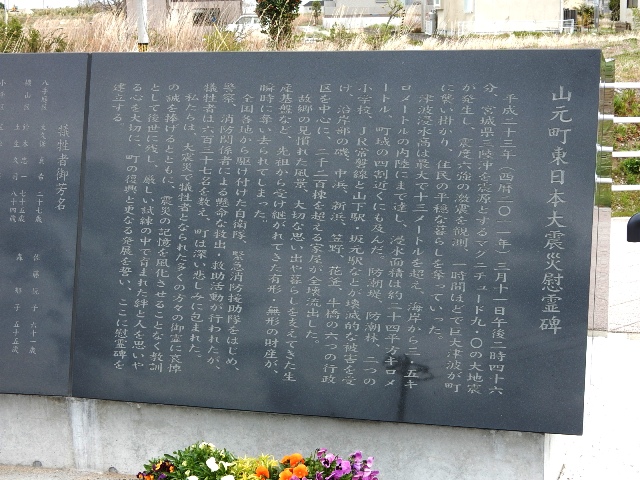 山元町東日本大震災慰霊碑
平成二十三年（西暦二〇一一年）三月十一日午後二時四十六
分、宮城県三陸沖を震源とするマグニチュード九・〇の大地震
が発生し、震度六強の激震を観測、一時間ほどで巨大津波が町
に襲い掛かり、住民の平穏な暮らしを奪っていった。
津波浸水高は最大で十三メートルを超え、海岸から三・五キ
ロメートルの内陸にまで達し、浸水面積は約二十四平方キロメ
ートル、町域の四割近くにも及んだ。防潮堤、防潮林、二つの
小学校、JR常磐線と山下駅・坂元駅などが壊滅的な被害を受
け、沿岸部の磯、中浜、新浜、笠野、花釜、牛橋の六つの行政
区を中心に、二千二百棟を超える家屋が全壊流出した。
故郷の見慣れた風景、大切な思い出や暮らしを支えてきた生
活基盤など、先祖から受け継がれてきた有形・無形の財産が、
瞬時に奪い去られてしまった。
全国各地から駆け付けた自衛隊、緊急消防援助隊をはじめ、
警察、消防関係者による懸命な救出、救助活動が行われたが、
犠牲者は六百三十七名を数え、町は深い悲しみに包まれた。
私たちは、大震災で犠牲者となられた多くの方々の御霊に哀悼
の誠を捧げるとともに、震災の記憶を風化させることなく教訓
として後世に残し、厳しい試練の中で育まれた絆と人を思いや
る心を大切に、町の復興と更なる発展を誓い、ここに慰霊碑を
建立する。
犠牲者御芳名